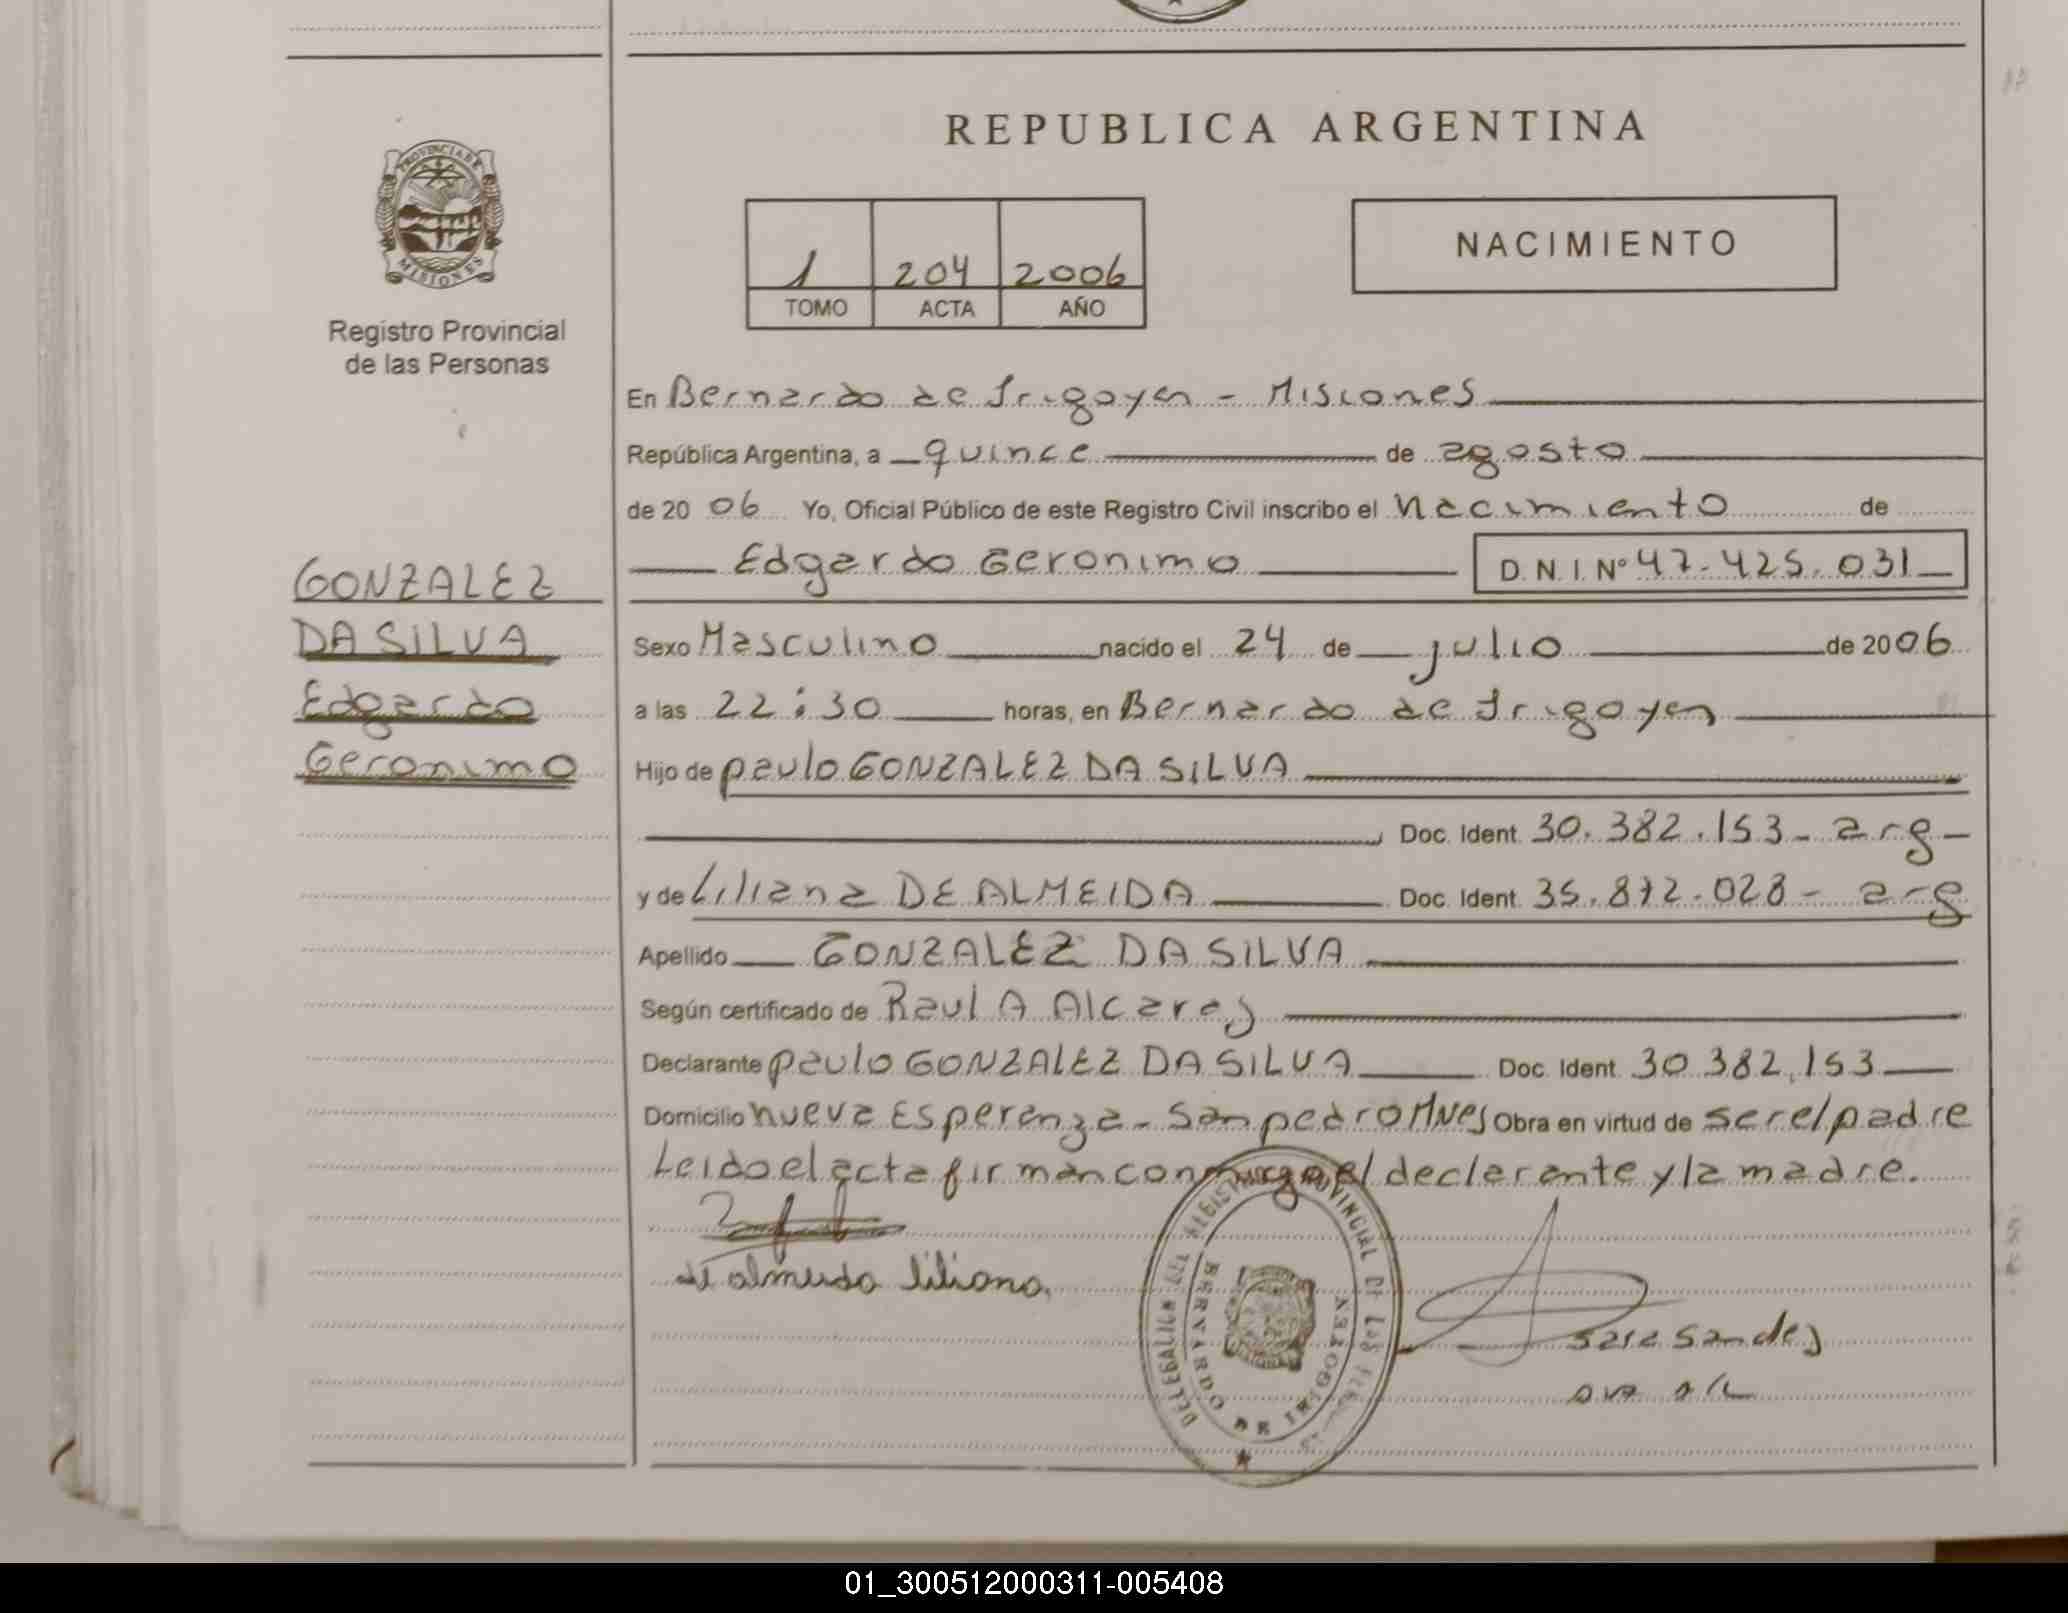 REPUBLICA ARGENTINA
PROVINCIA DE
MISIONES
Registro Provincial
de las Personas
1 204 2006
TOMO ACTA AÑO
NACIMIENTO
En Bernardo de Irigoyen - Misiones
República Argentina, a quince de agosto
de 2006 Yo, Oficial Público de este Registro Civil inscribo el Nacimiento de
Edgardo Geronimo D.N.I. Nº 47.425.031
GONZALEZ
DA SILVA
Edgardo
Geronimo
Sexo Masculino nacido el 24 de julio de 2006
a las 22:30 horas, en Bernardo de Irigoyen
Hijo de paulo GONZALEZ DA SILVA
Doc. Ident. 30.382.153- arg-
y de Liliana DE ALMEIDA Doc. Ident. 35.872.028- arg
Apellido GONZALEZ DA SILVA
Según certificado de Raul A Alcaraz
Declarante paulo GONZALEZ DA SILVA Doc. Ident. 30.382.153
Domicilio nueva Esperanza - San pedro Mnes Obra en virtud de ser el padre
Leido el acta firman conmigo el declarante y la madre.
de almeida liliana.
REGISTRO PROVINCIAL DE LAS
BERNARDO DE IRIGOYEN
01_300512000311-005408